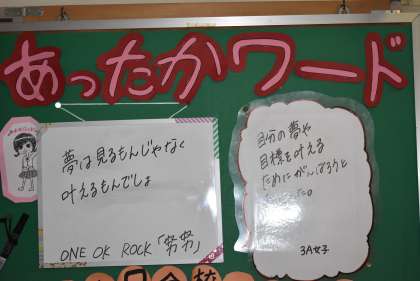 あったかワード
夢は見るもんじゃなく
叶えるもんでしょ
ONE OK ROCK「努努」
自分の夢や
目標を叶える
ためにがんばろうと
3A女子